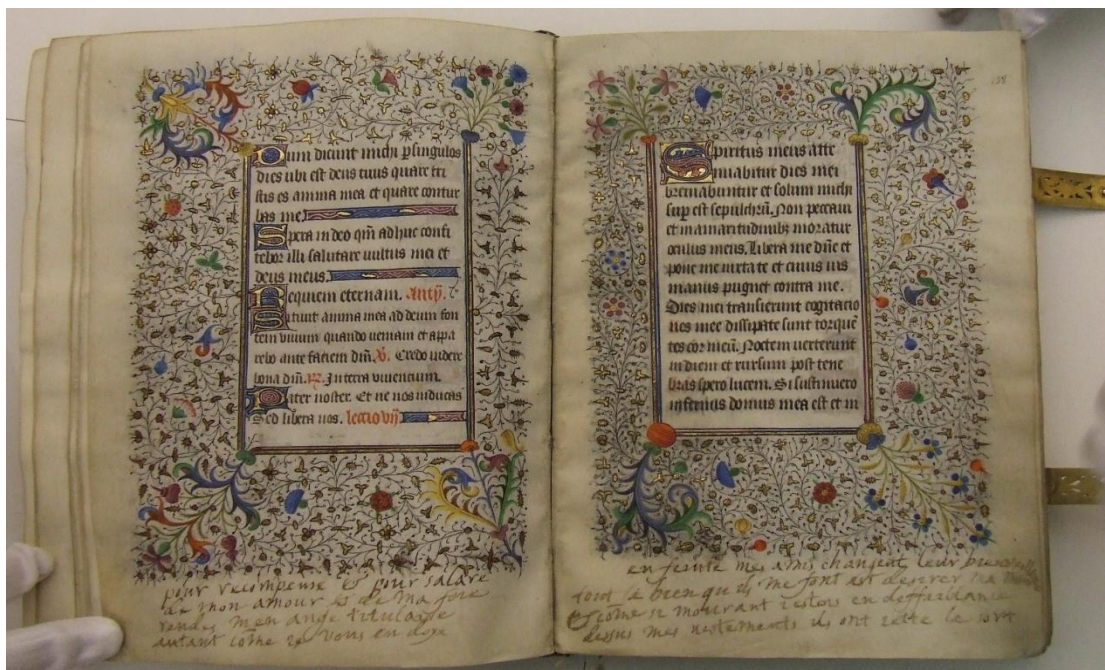 Dum dicunt michi p singulos
dies ubi est deus tuus quare tri
stis es anima mea et quare contur
bas me
Spera in deo qm̄ adhuc confi
tebor illi salutare vultus mei et
deus meus.
Requiem eternam. Antϥ.
Sitivit anima mea ad deum fon
tem vivum quando veniam et appa
rebo ante faciem dn̄i. V. Credo videre
bona dn̄i. R. In terra viventium.
Pater noster. Et ne nos inducas
Sed libera nos. lectio vij
pour recompense et pour salare
de mon amour et de ma foie
rendes men ange titulaire
autant come ie vous en done
138
Spiritus meus atte
nuabitur dies mei
breviabuntur et solum michi
sup est sepulchrū. Non peccavi
et in amaritudinibz moratur
oculus meus. Libera me dn̄e et
pone me iuxta te et cuius vis
manus pugnet contra me.
Dies mei transierunt cogitacio
nes mee dissipate sunt torquē
tes cor meū. Noctem verterunt
in diem et rursum post tene
bras spero lucem. Si sustinuero
infernus domus mea est et in
en feinte mes amis changent leur
tout le bien quils me font est desirer ma
et come si mourant iestois en deffaillance
dessus mes vestements ils ont iette le sort